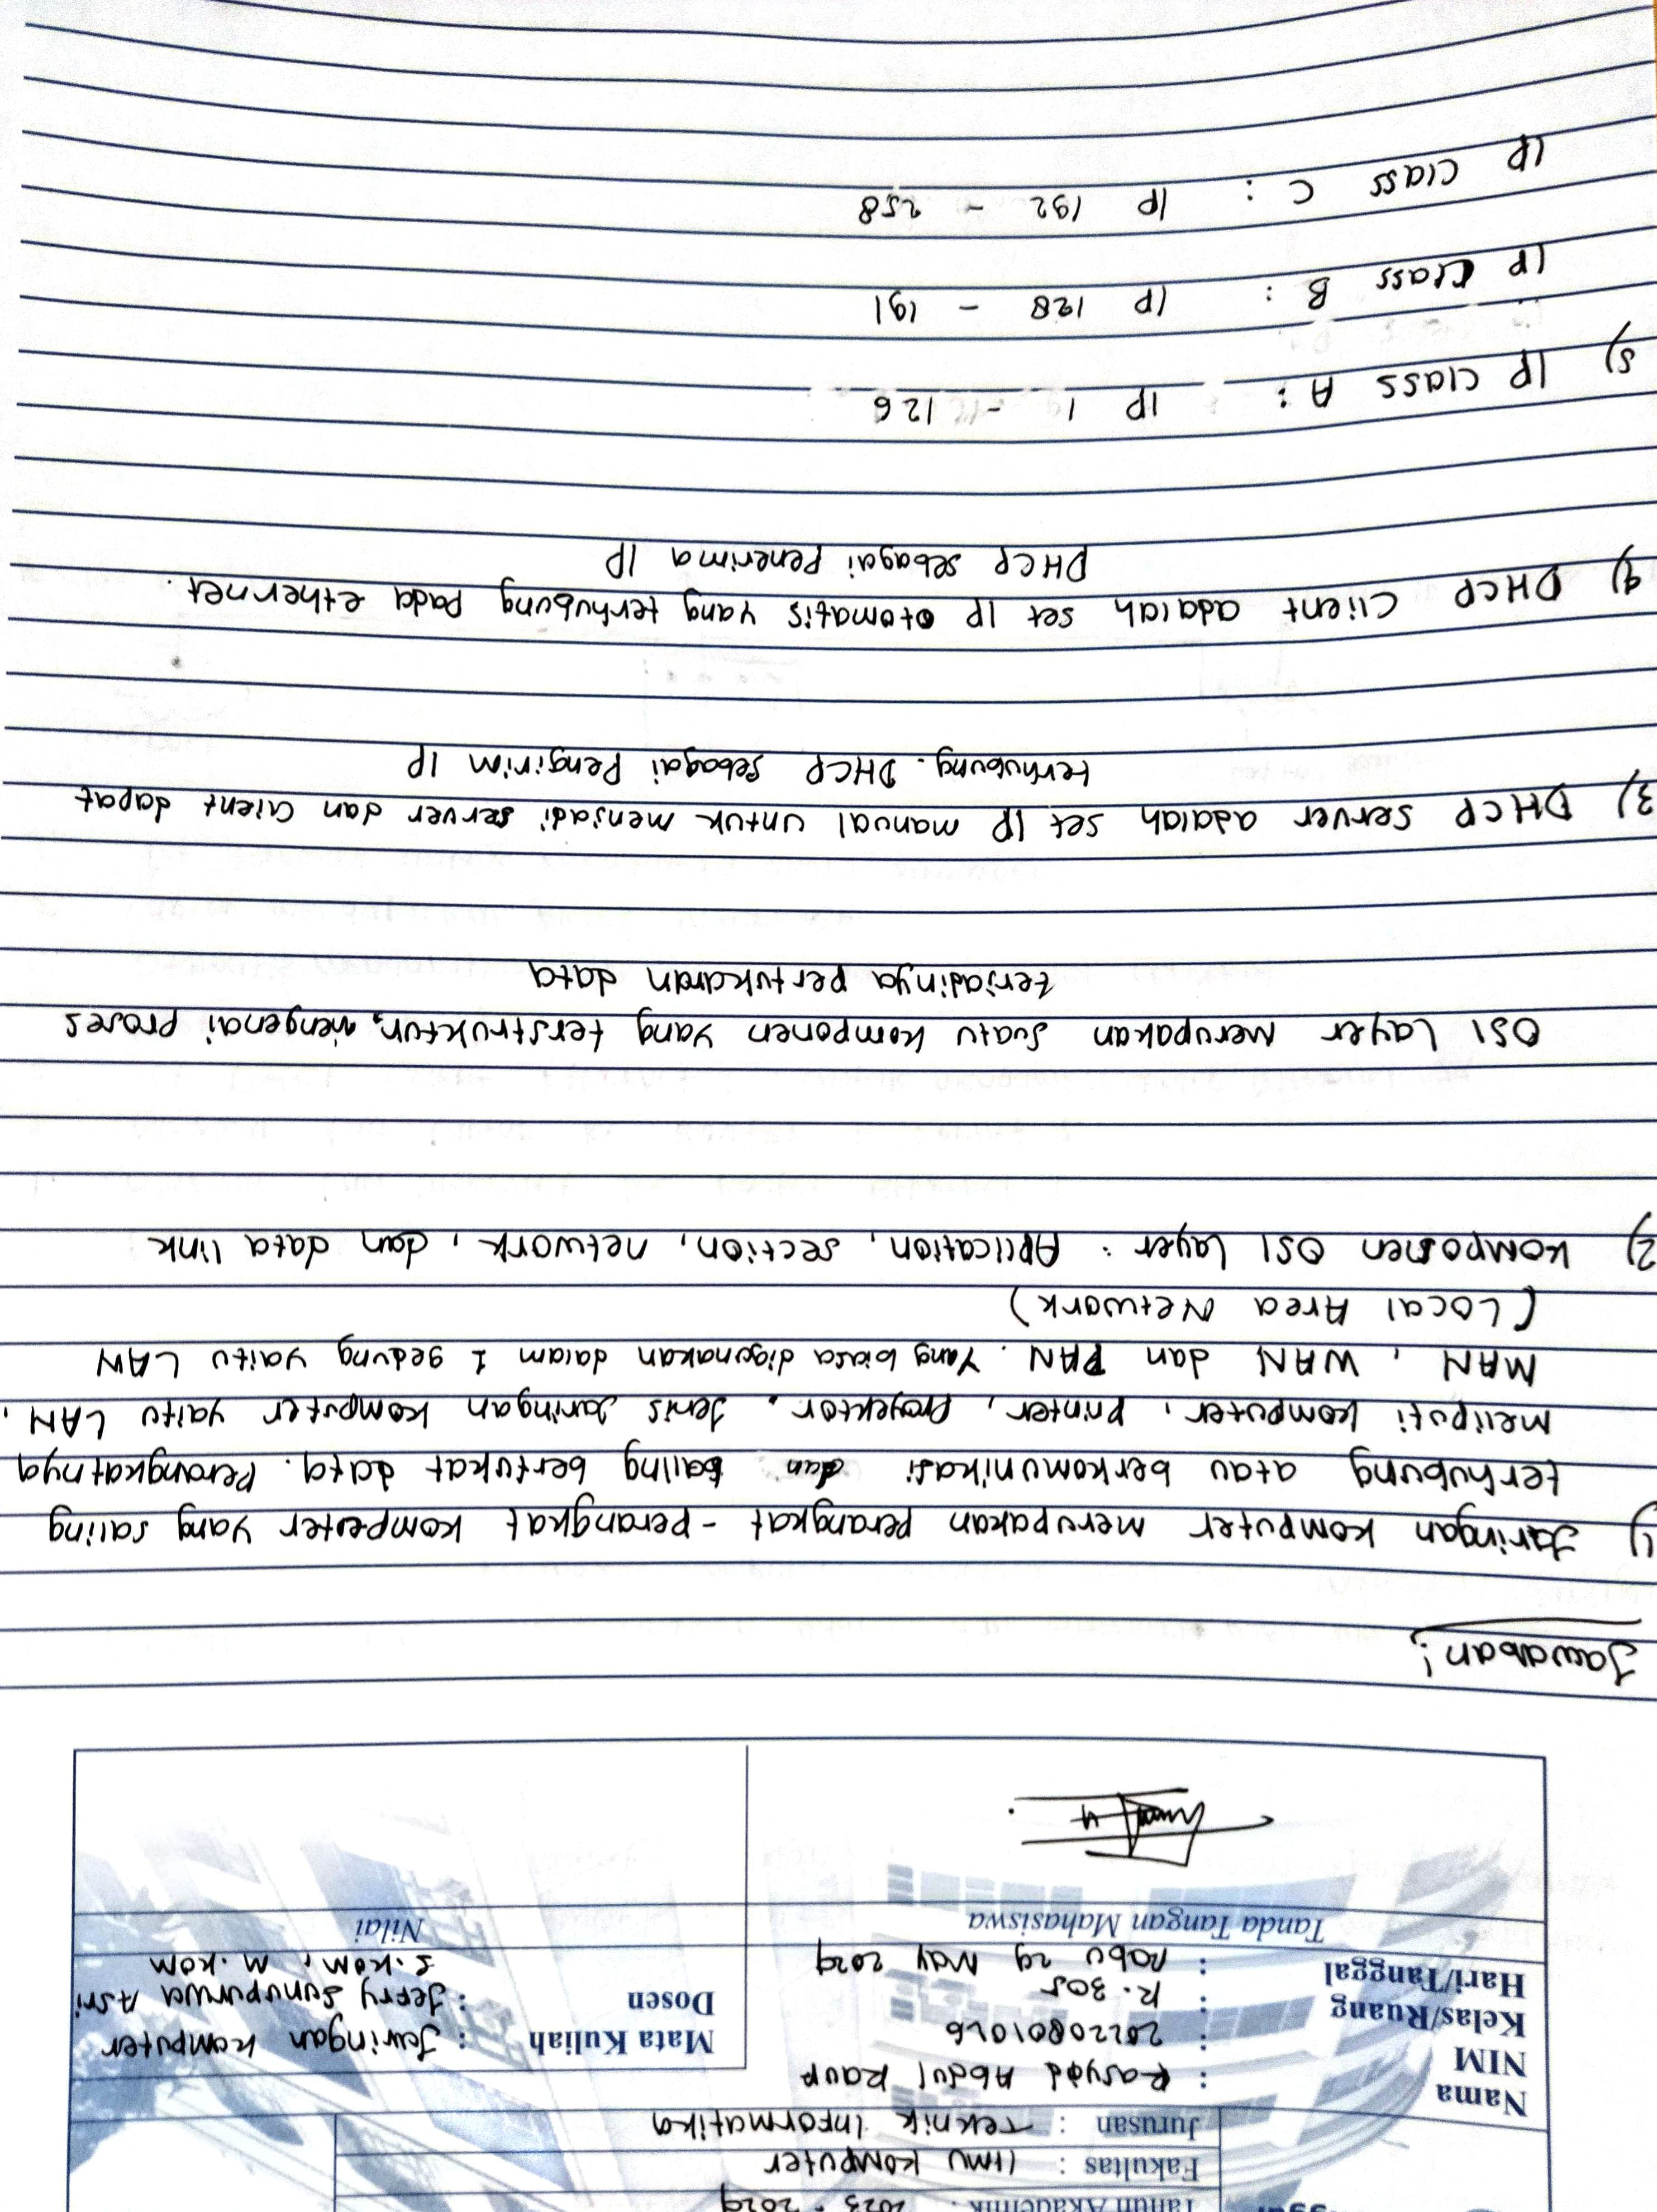 Tahun Akademik : 2023 - 2024
Fakultas : Ilmu Komputer
Jurusan : Teknik Informatika
Nama : Rasyid Abdul Rauf
NIM : 20220801026
Kelas/Ruang : R.305
Hari/Tanggal : Rabu 29 May 2024
Mata Kuliah : Jaringan Komputer
Dosen : Jefry Sunupurwa Asri
S.Kom, M.Kom
Tanda Tangan Mahasiswa
Nilai
Jawaban!
1) Jaringan komputer merupakan perangkat - perangkat komputer yang saling
terhubung atau berkomunikasi dan saling bertukat data. Perangkatnya
meliputi komputer, printer, proyektor. Jenis Jaringan komputer yaitu LAN,
MAN, WAN dan PAN. Yang biasa digunakan dalam 1 gedung yaitu LAN
(Local Area Network)
2) Komponen OSI Layer : Aplication, section, network, dan data link
OSI Layer merupakan suatu komponen yang terstruktur, mengenai proses
terjadinya pertukaran data
3) DHCP server adalah set IP manual untuk menjadi server dan client dapat
terhubung. DHCP sebagai Pengirim IP
4) DHCP Client adalah set IP otomatis yang terhubung pada ethernet.
DHCP sebagai Penerima IP
5) IP class A : IP 1 - 126
IP class B : IP 128 - 191
IP class C : IP 192 - 258